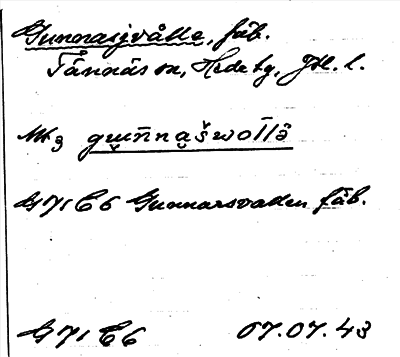 Gunnasjvålle, fäb.
Tännäs sn, Hede tg, Jtl. l.
gu̯n̄na̯šwol̄lä
G 71 C6 Gunnarsvallen fäb.
G 71 C6 07.07.43